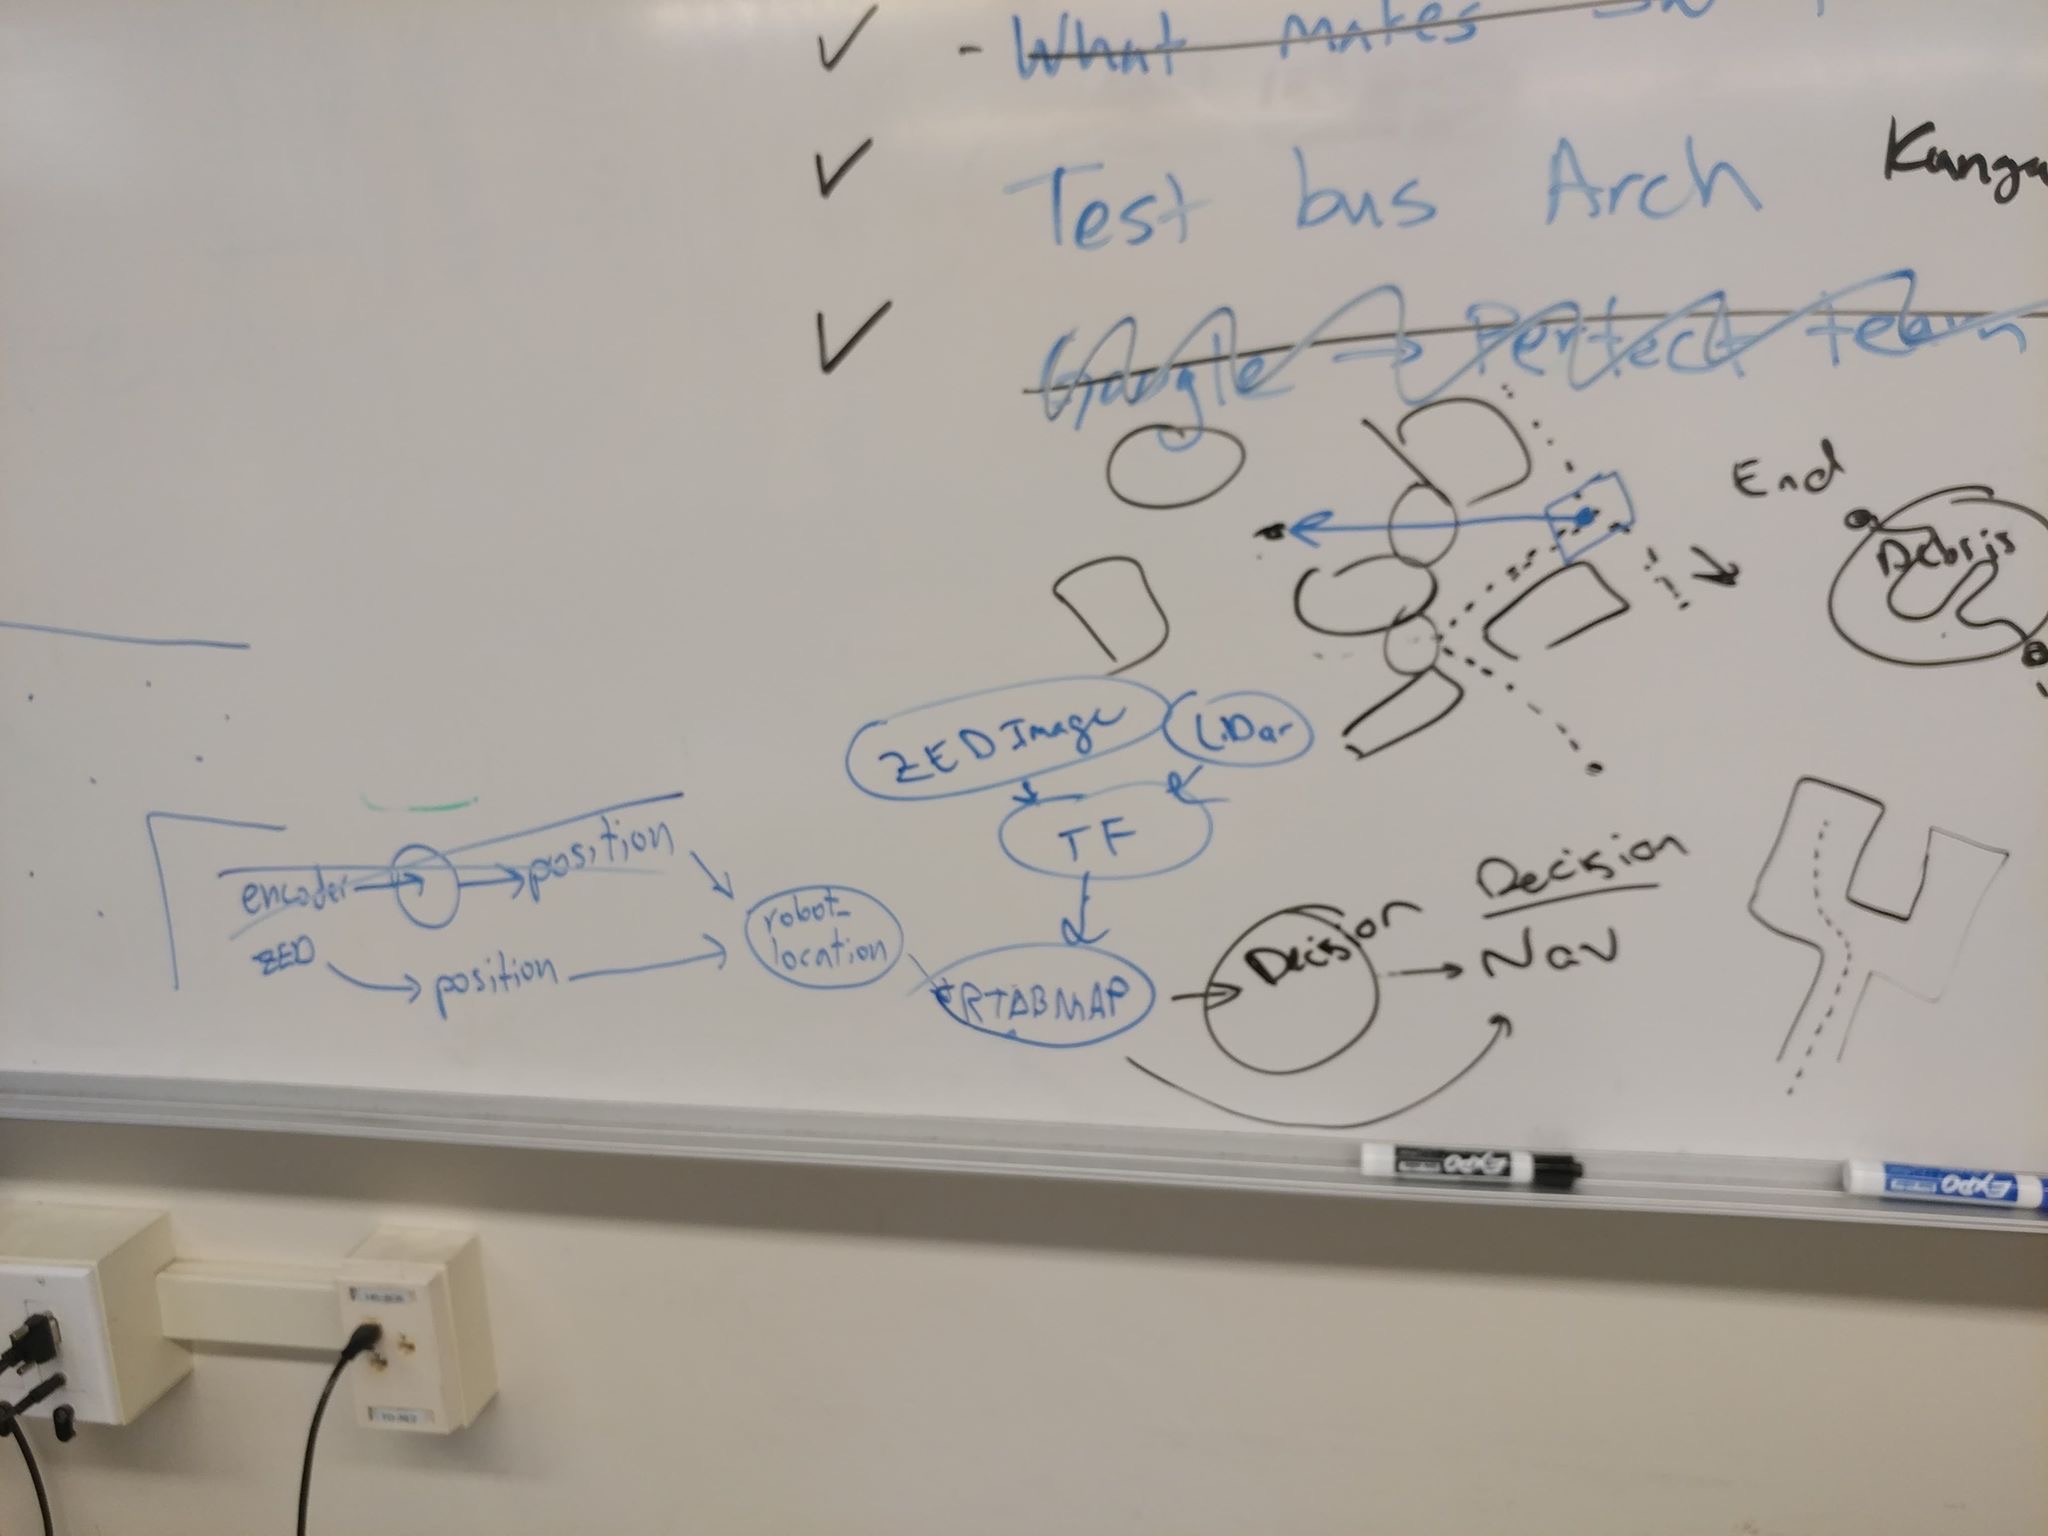 - What makes
Test bus Arch
Google → Perfect team
End
Debris
ZED Image
LiDar
TF
encoder → position
ZED → position
robot_
location
RTABMAP
Decision
Decision
Nav
EXPO
EXPO